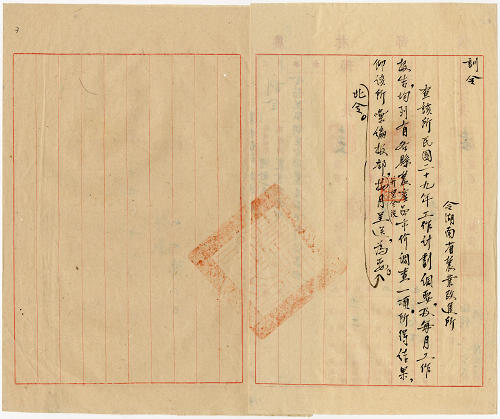 訓令
令湖南省農業改進所
查該所民國二十九年工作計劃綱要及每月工作
報告,均列有各縣農產品市價調查一項,所得結果,
仰該所彙編報部,按月呈送為要。
此令。